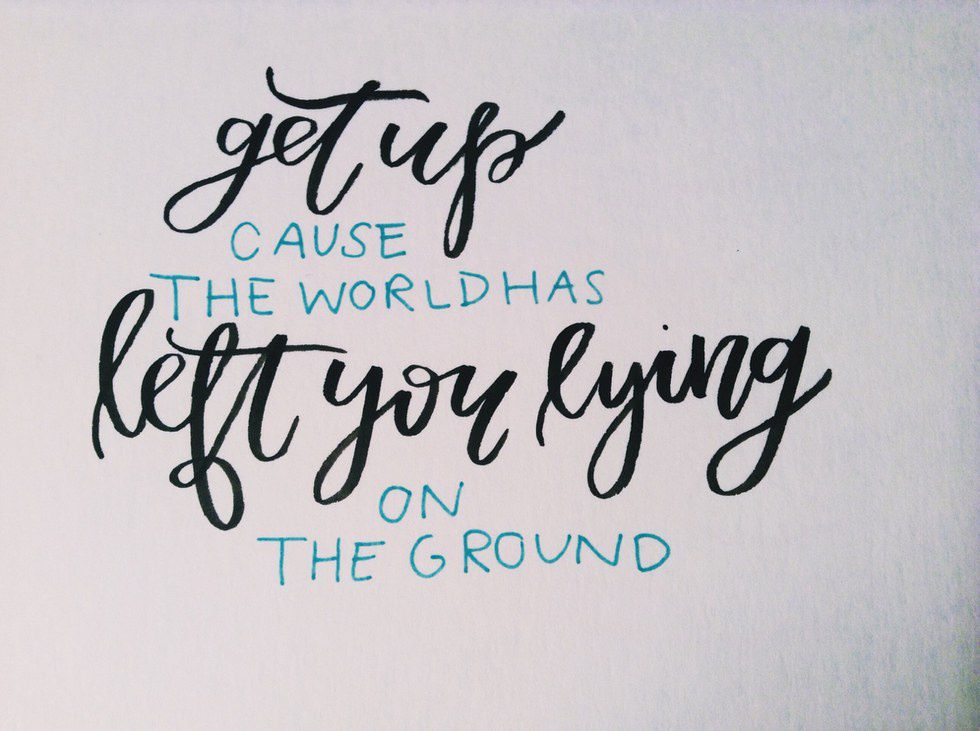 get up
CAUSE
THE WORLD HAS
left you lying
ON
THE GROUND